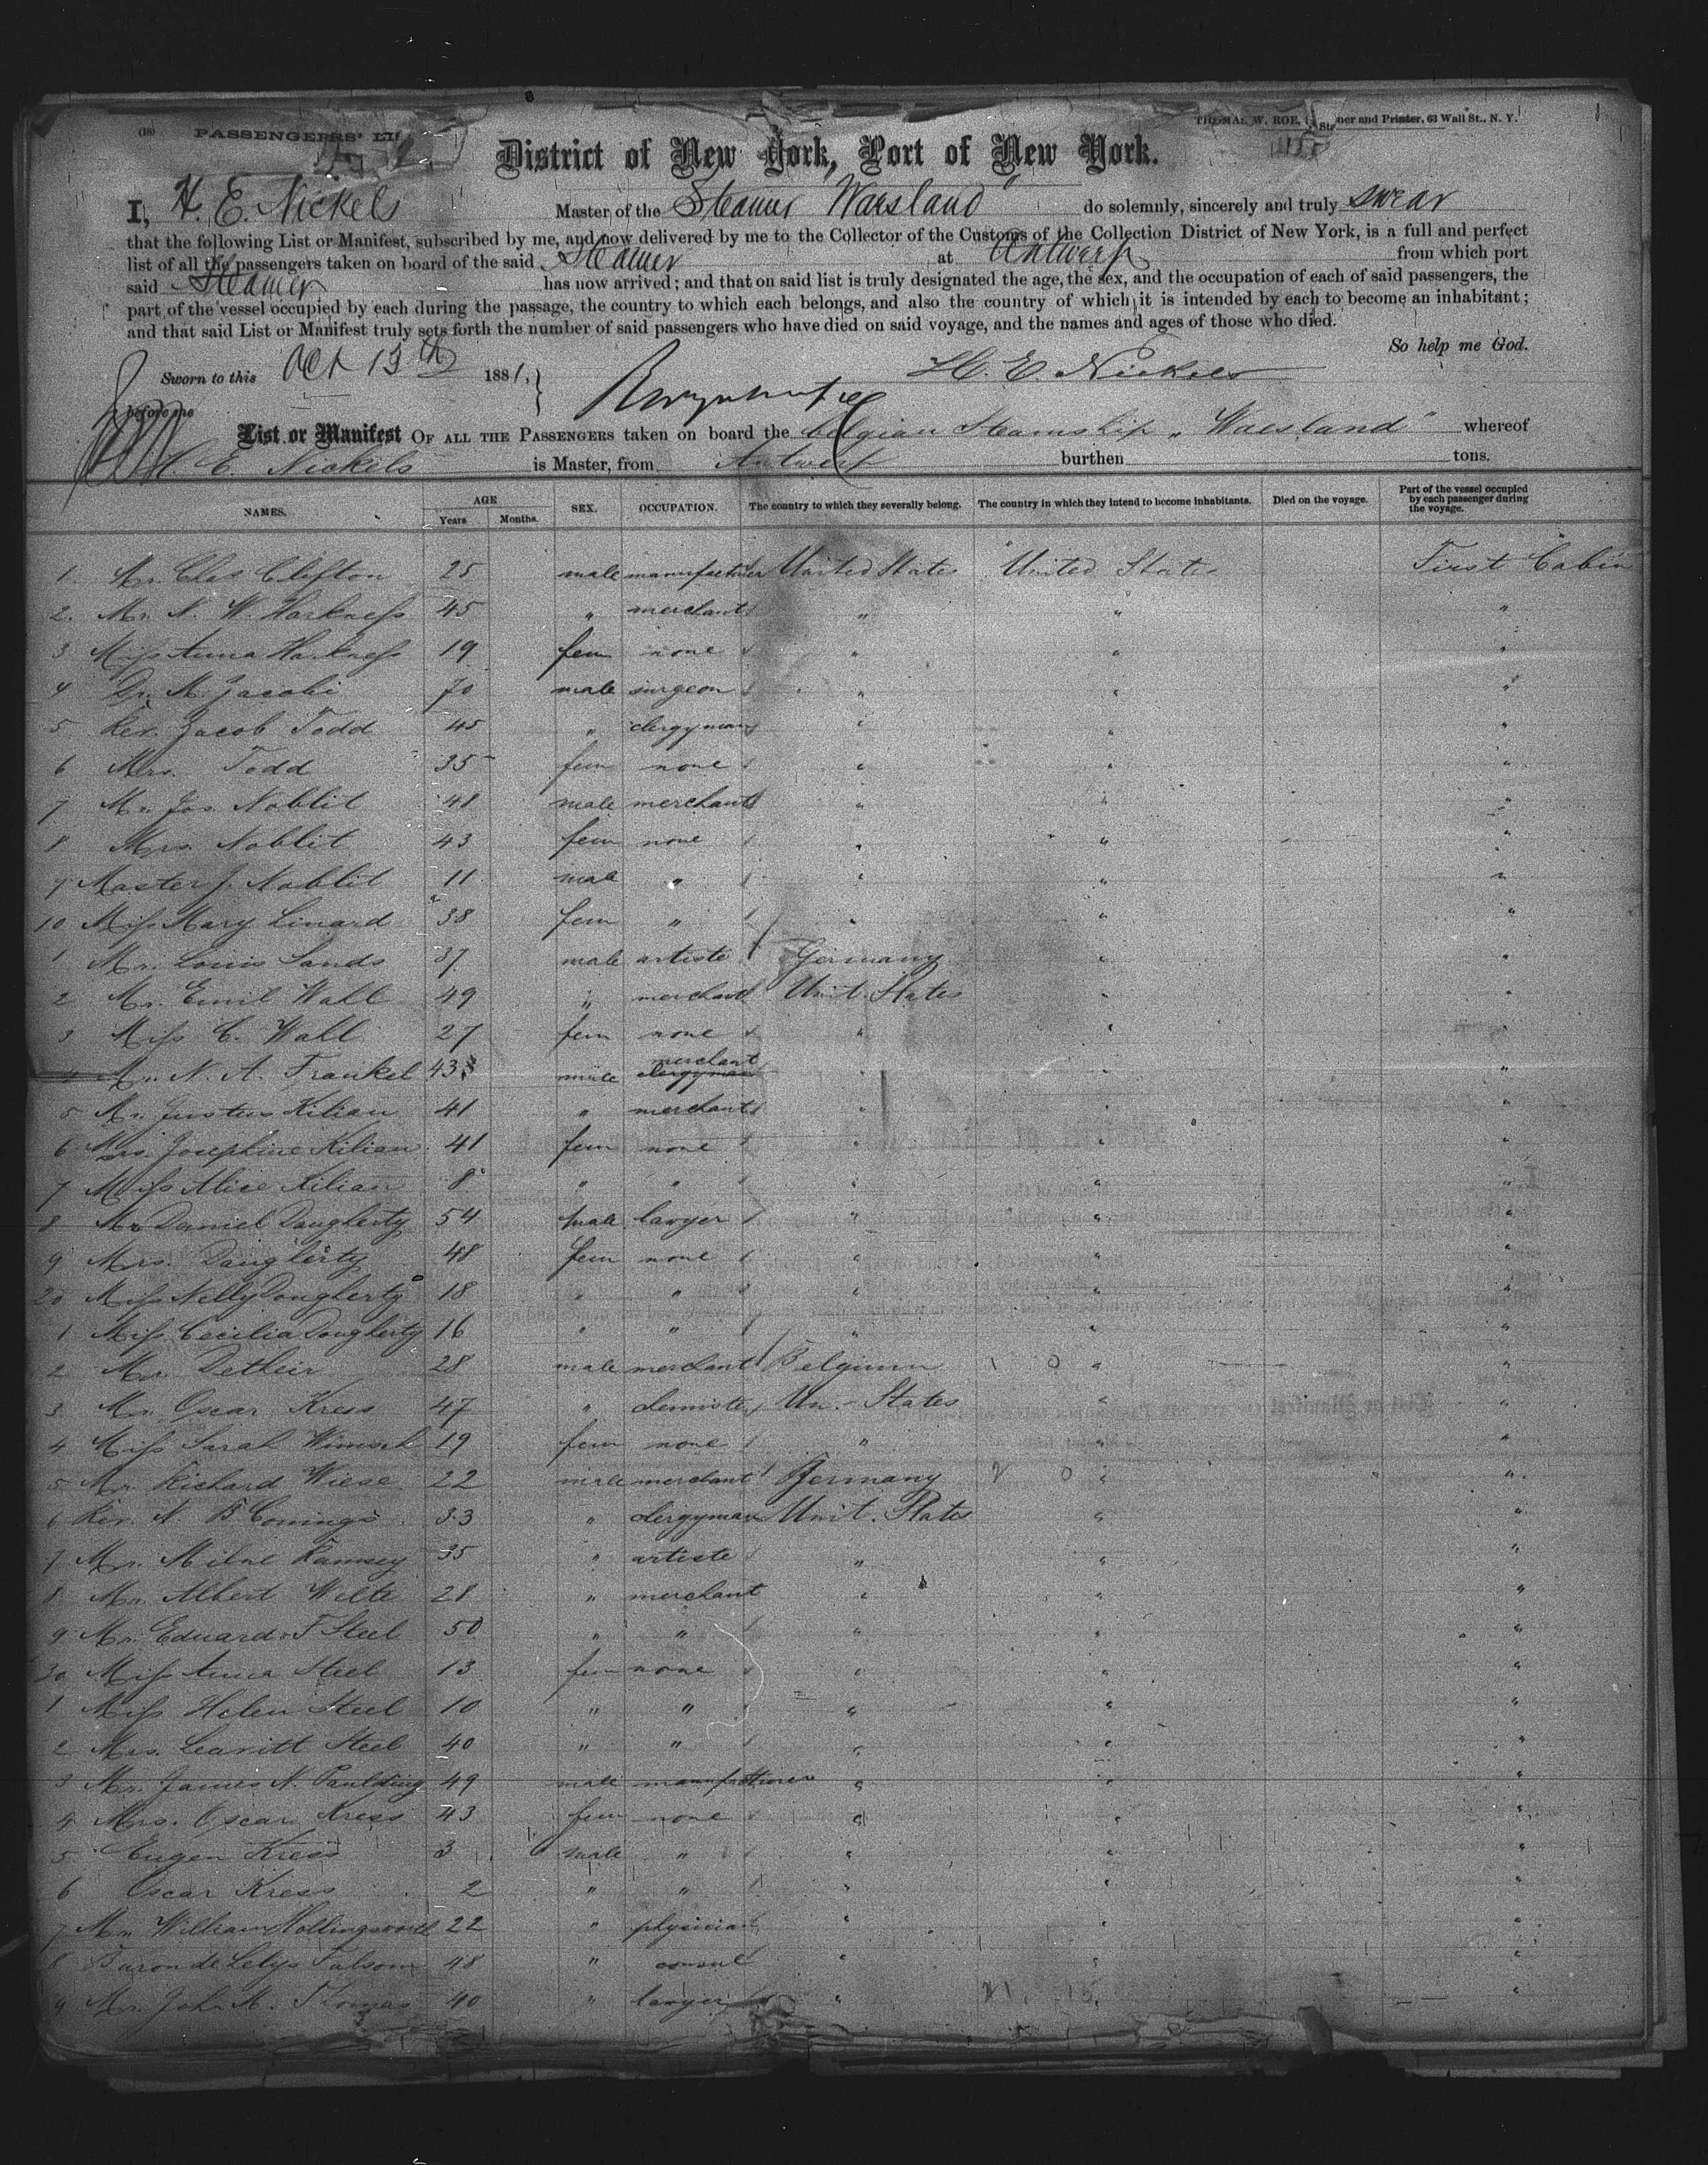 (18) PASSENGERS' LI
THOMAS W. ROE, Stationer and Printer, 63 Wall St., N. Y.
District of New York, Port of New York.
I, H. E. Nickels Master of the Steamer "Waesland" do solemnly, sincerely and truly swear
that the following List or Manifest, subscribed by me, and now delivered by me to the Collector of the Customs of the Collection District of New York, is a full and perfect
list of all the passengers taken on board of the said Steamer at Antwerp from which port
said Steamer has now arrived; and that on said list is truly designated the age, the sex, and the occupation of each of said passengers, the
part of the vessel occupied by each during the passage, the country to which each belongs, and also the country of which it is intended by each to become an inhabitant;
and that said List or Manifest truly sets forth the number of said passengers who have died on said voyage, and the names and ages of those who died.
So help me God.
Sworn to this Oct 13th 1881, H. E. Nickels
before me
List or Manifest OF ALL THE PASSENGERS taken on board the Belgian Steamship "Waesland" whereof
H E. Nickels is Master, from Antwerp burthen tons.
NAMES. AGE Years Months. SEX. OCCUPATION. The country to which they severally belong. The country in which they intend to become inhabitants. Died on the voyage. Part of the vessel occupied by each passenger during the voyage.
1. Mr. Chas Clifton 25 male manufacturer United States United States First Cabin
2. Mr. N. W. Harkness 45 " merchant " " "
3 Miss Anna Harkness 19 fem none " " "
4 Dr. M. Jacobi 70 male surgeon " " "
5 Rev. Jacob Todd 45 " clergyman " " "
6 Mrs. Todd 35 fem none " " "
7 Mr. Jos. Noblit 48 male merchant " " "
8 Mrs. Noblit 43 fem none " " "
9 Master J. Noblit 11 male " " " "
10 Miss Mary Linard 38 fem " " " "
1 Mr. Louis Sands 37 male artiste Germany " "
2 Mr. Emil Wahl 49 " merchant Unit. States " "
3 Miss C. Wahl 27 fem none " " "
4 Mr. N. A. Frankel 43 male merchant clergyman " " "
5 Mr. Justus Kilian 41 " merchant " " "
6 Mrs. Josephine Kilian 41 fem none " " "
7 Miss Alice Kilian 8 " " " " "
8 Mr. Daniel Dougherty 54 male lawyer " " "
9 Mrs. Dougherty 48 fem none " " "
20 Miss Nelly Dougherty 18 " " " " "
1 Miss Cecilia Dougherty 16 " " " " "
2 Mr. Detheir 28 male merchant Belgium " "
3 Mr. Oscar Kress 47 " Un. States " "
4 Miss Sarah 19 fem none " " "
5 Mr. Richard Wiese 22 male merchant Germany " "
6 Rev. N. B Comings 33 " clergyman Unit. States " "
7 Mr. Milne Ramsey 35 " artiste " " "
8 Mr. Albert Welte 28 " merchant " " "
9 Mr. Edward F Steel 50 " " " " "
30 Miss Anna Steel 13 fem none " " "
1 Miss Helen Steel 10 " " " " "
2 Mrs. Leavitt Steel 40 " " " " "
3 Mr. James N. Paulding 49 male manufacturer " " "
4 Mrs. Oscar Kress 43 fem none " " "
5 Eugen Kress 3 male " " " "
6 Oscar Kress 2 " " " " "
7 Mr. William Hollingsworth 22 " physician " " "
8 Baron de 48 " consul " " "
9 Mr. John M. Thomas 40 " lawyer " " "